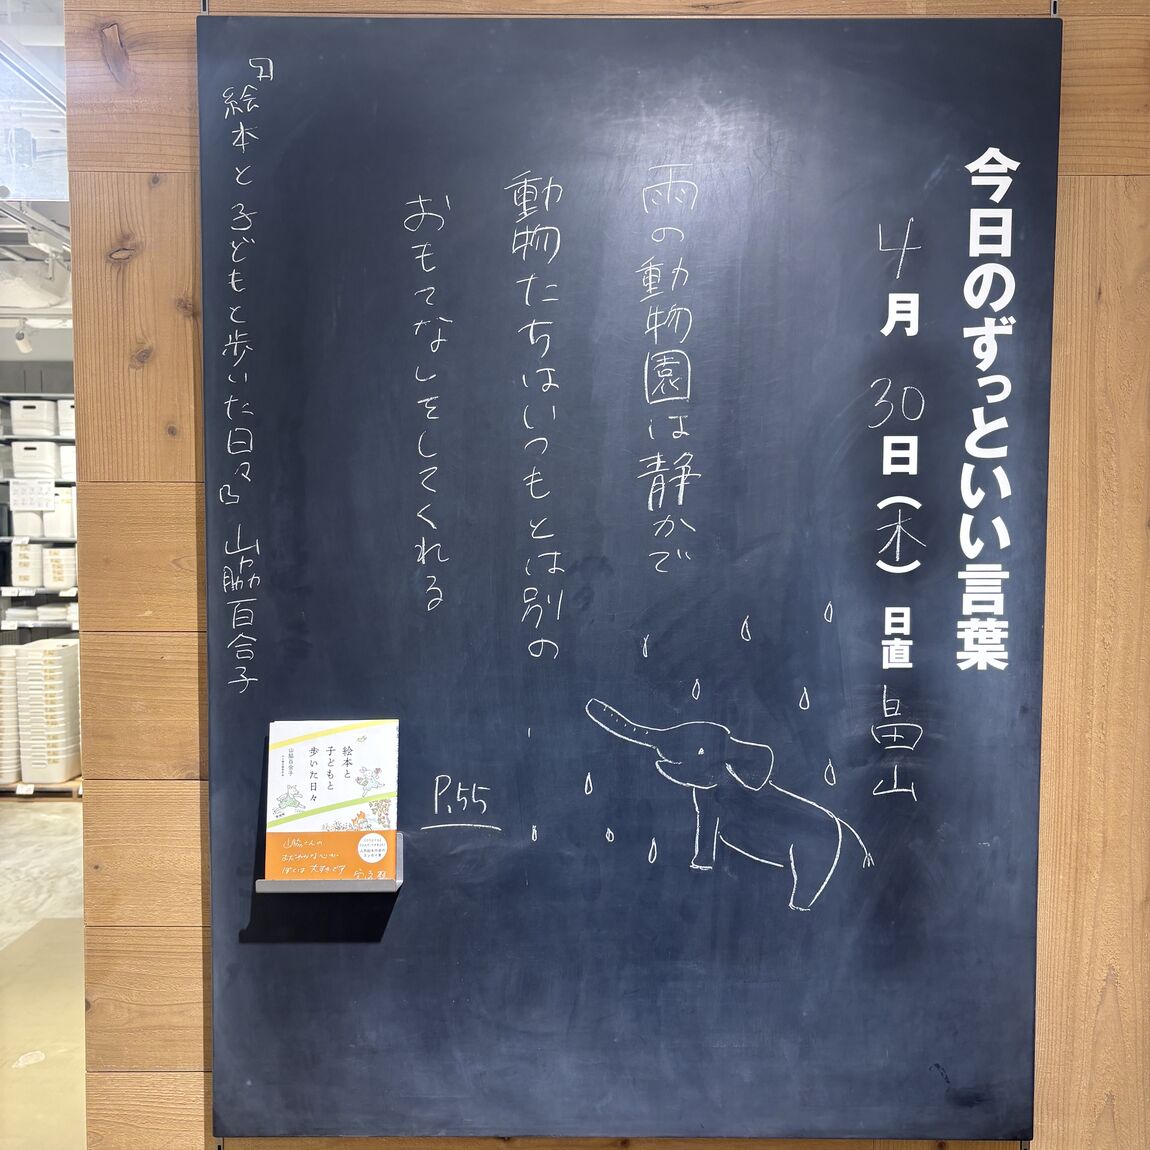 今日のずっといい言葉
4月30日(木) 日直 畠山
雨の動物園は静かで
動物たちはいつもとは別の
おもてなしをしてくれる
P.55
『絵本と子どもと歩いた日々』 山脇百合子
絵本と
子どもと
歩いた日々
山脇百合子